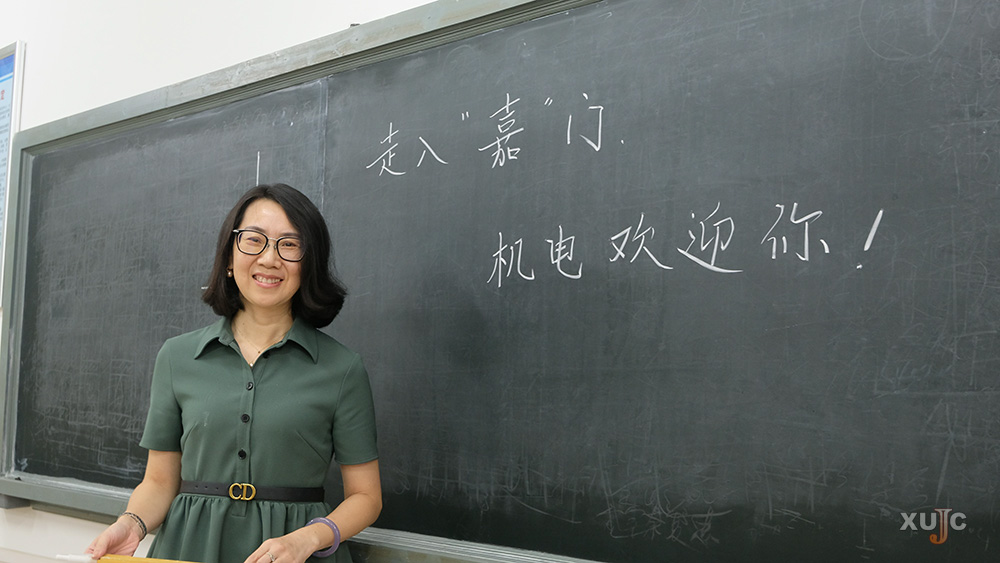 走入“嘉”门.
机电欢迎你!
CD
XUJC